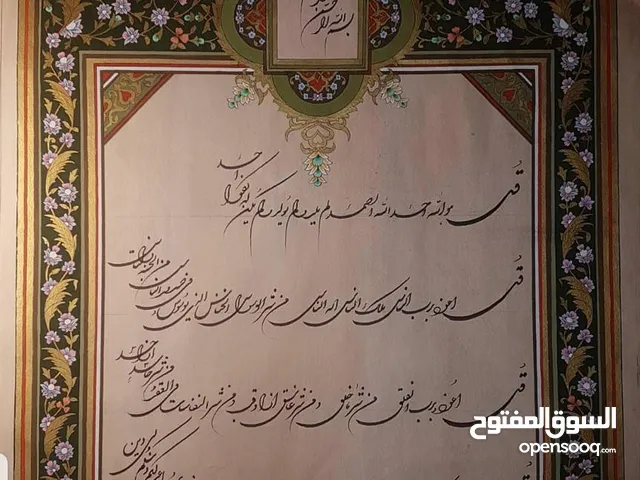 بسم الله الرحمن
قل هو الله احد الله الصمد لم یلد و لم یولد و لم یکن له کفوا احد
قل اعوذ برب الناس ملک الناس اله الناس من شر الوسواس الخناس الذی یوسوس فی صدور الناس من الجنة و الناس
قل اعوذ برب الفلق من شر ما خلق و من شر غاسق اذا وقب و من شر النفاثات فی العقد و من شر حاسد اذا حسد
قل
لکم دینکم ولی دین
السوق المفتوح
opensooq.com